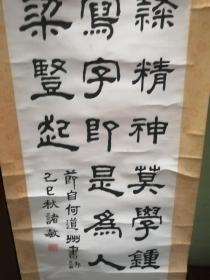 精神莫學鍾
寫字即是爲人
梁豎起
節自何道州書訣
己巳秋諸敏